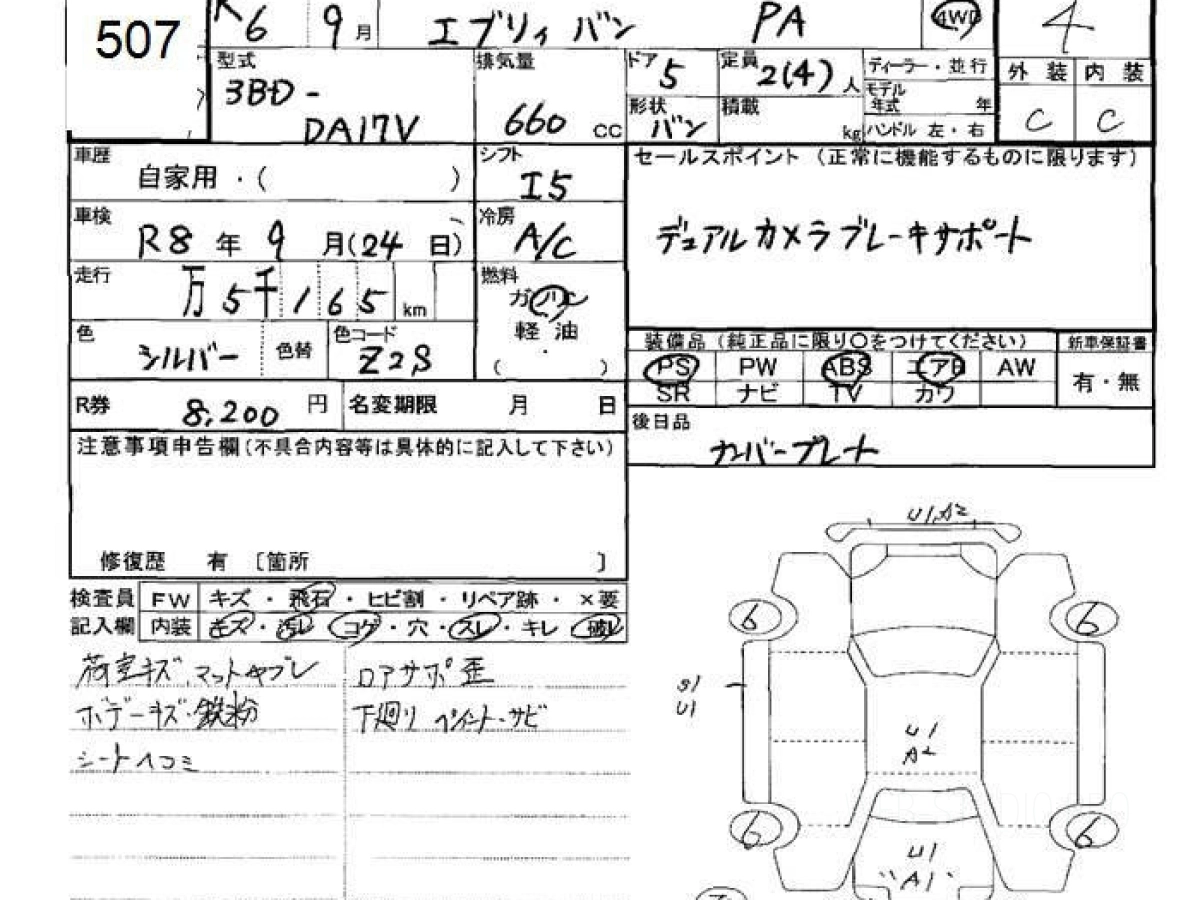 507
R6 9月 エブリィ バン PA 4WD 4
型式 排気量 ドア 5 定員 2(4)人 ディーラー・並行 外装 内装
3BD-
DA17V 660 cc 形状 バン 積載 kg モデル年式 年 C C
ハンドル 左・右
車歴 自家用・( ) シフト I5 セールスポイント(正常に機能するものに限ります)
車検 R8年 9月(24日) 冷房 A/C デュアルカメラブレーキサポート
走行 万5千165km 燃料 ガソリン
軽油
・
( )
色 シルバー 色替 色コード Z2S
装備品(純正品に限り○をつけてください) 新車保証書
PS PW ABS エアB AW 有・無
SR ナビ TV カワ
R券 8,200円 名変期限 月 日
後日品 ナンバープレート
注意事項申告欄(不具合内容等は具体的に記入して下さい)
修復歴 有 〔箇所 〕
検査員 FW キズ・飛石・ヒビ割・リペア跡・×要
記入欄 内装 キズ・汚レ・コゲ・穴・スレ・キレ・破レ
荷室キズ、マットヤブレ ロアサポ歪
ボデーキズ・鉄粉 下廻り ペイント・サビ
シートヘコミ
U1,A2
6 6
S1
U1
U1
A2
6 6
U1
"A1"